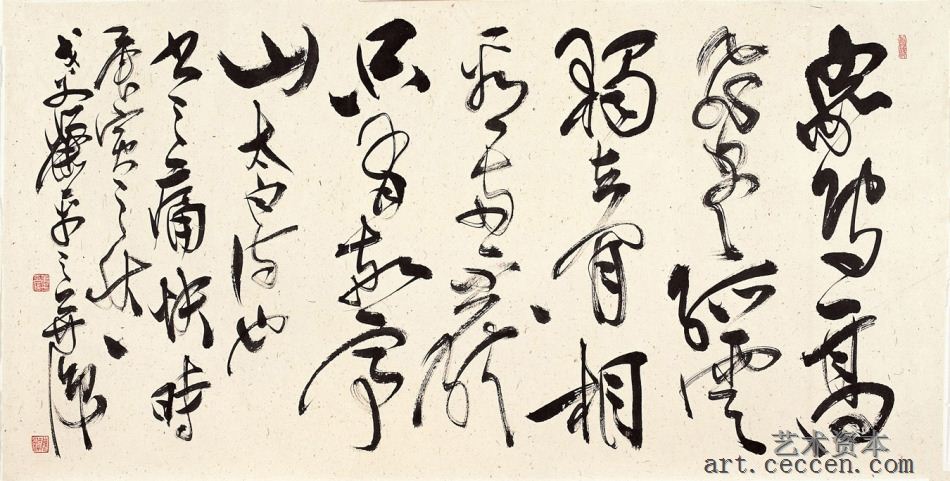 眾鳥高
飛盡孤雲
獨去閒相
看兩不厭
只有敬亭
山太白詩也
书之痛快時
庚寅之秋
艺术资本
art.ceccen.com